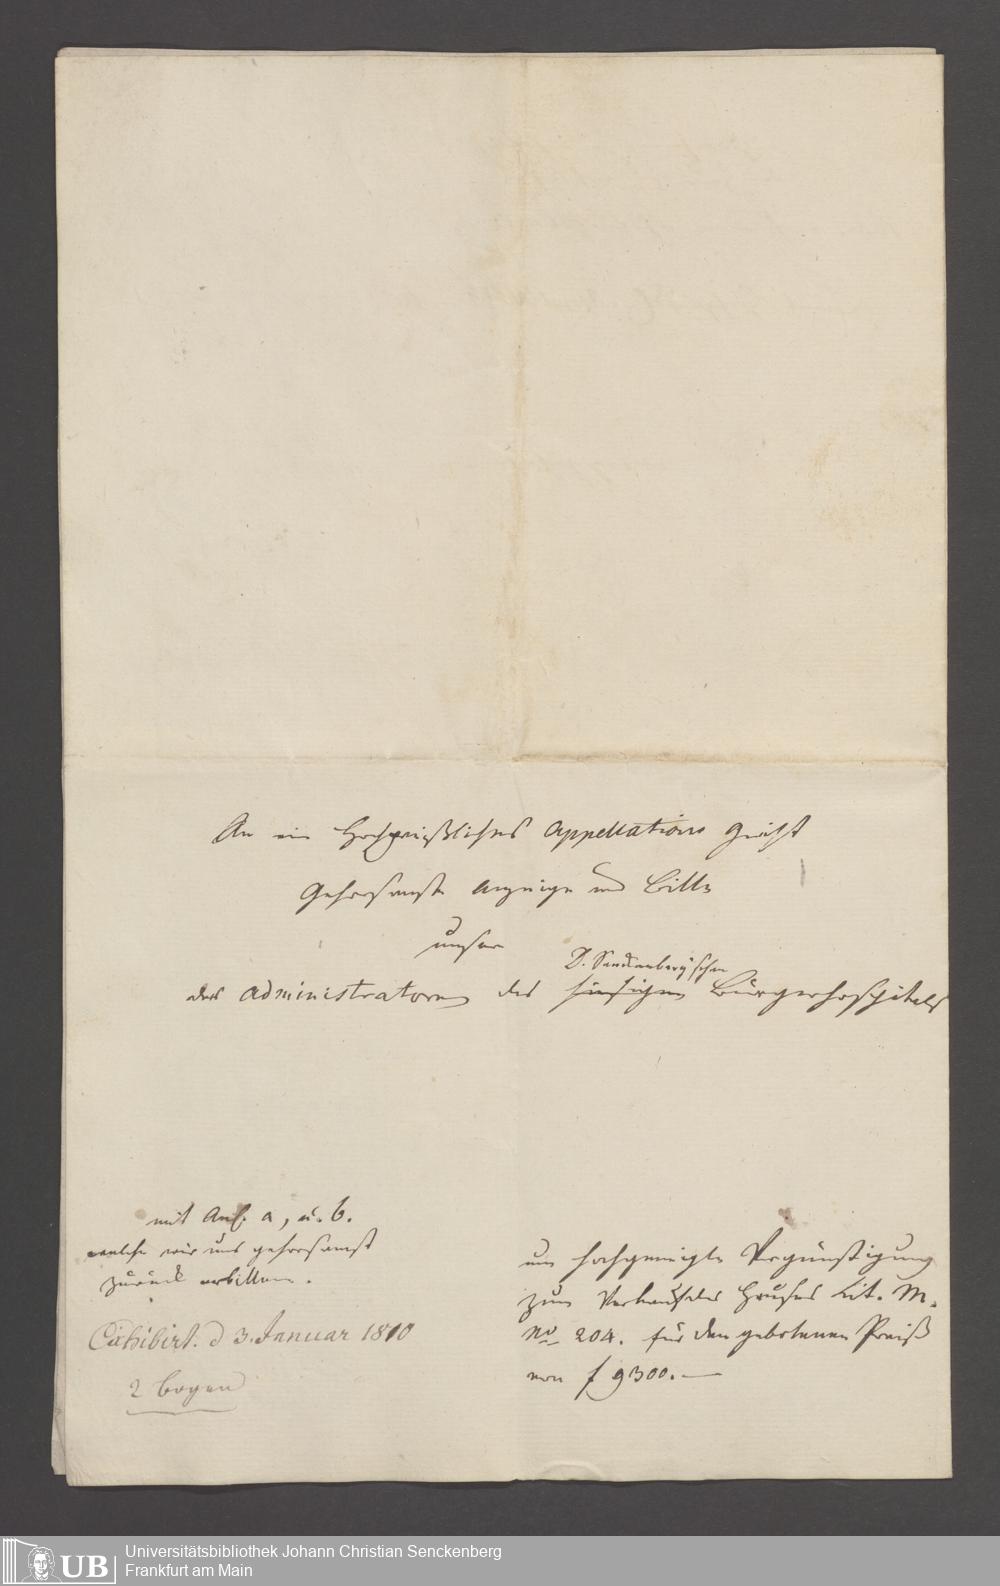 An ein Hochpreißliches Appellations Gericht
Gehorsamste Anzeige und Bitte
unser
D. Senckenbergischen
der Administratoren des hiesigen Bürgerhospitals
mit Anl. a, u. b.
welche wir uns gehorsamst
zurück erbitten.
Exhibirt. d 3. Januar 1810
2 bogen
um hochgeneigte Vergünstigung
zum Verkauf des Hauses Lit. M.
No 204. für den gebotenen Preiß
von f 9300.—
UB
Universitätsbibliothek Johann Christian Senckenberg
Frankfurt am Main